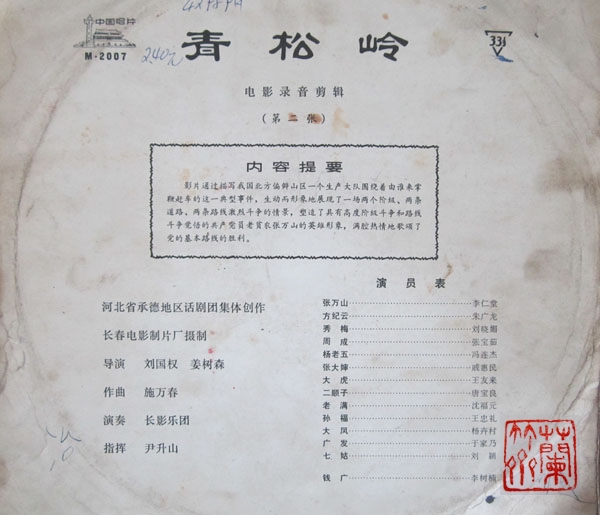 中国唱片
M-2007
2.40元
青松岭
33⅓
电影录音剪辑
(第二张)
内容提要
影片通过描写我国北方偏僻山区一个生产大队围绕着由谁来掌
鞭赶车的这一典型事件，生动而形象地展现了一场两个阶级、两条
道路、两条路线激烈斗争的情景，塑造了具有高度阶级斗争和路线
斗争觉悟的共产党员老贫农张万山的英雄形象，满腔热情地歌颂了
党的基本路线的胜利。
河北省承德地区话剧团集体创作
长春电影制片厂摄制
导演 刘国权 姜树森
作曲 施万春
演奏 长影乐团
指挥 尹升山
演员表
张万山 李仁堂
方纪云 朱广龙
秀梅 刘晓媚
周成 张宝茹
杨老五 冯连杰
张大婶 戚惠民
大虎 王友来
二顺子 唐宝良
老满 沈福元
孙福 王忠礼
大凤 杨卉村
广发 于家乃
七姑 刘颖
钱广 李树楠